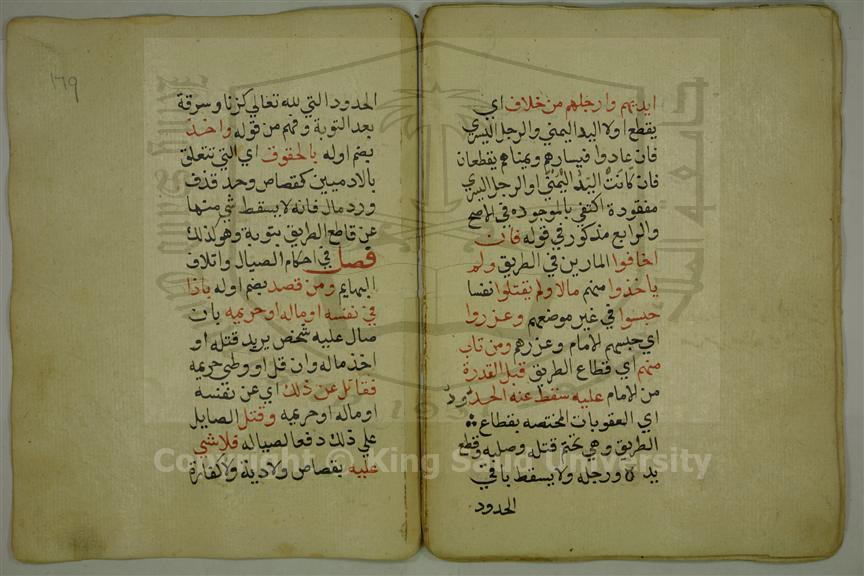 ايديهم وارجلهم من خلاف اي
يقطع اولا اليد اليمني والرجل اليسري
فان عادوا فيسارهم ويمناهم يقطعان
فان كانت اليد اليمني او الرجل اليسري
مفقودة اكتفي بالموجوده في الاصح
والرابع مذكور في قوله فان
اخافوا المارين في الطريق ولم
ياخذوا منهم مالا ولم يقتلوا نفسا
حبسوا في غير موضعهم وعزروا
اي حبسهم الامام وعزرهم ومن تاب
منهم اي قطاع الطريق قبل القدرة
من الامام عليه سقط عنه الحدود
اي العقوبات المختصه بقطاع
الطريق وهي تحتم قتله وصلبه وقطع
يده ورجله ولا يسقط باقي
الحدود
١٦٩
الحدود التي لله تعالي كزنا وسرقة
بعد التوبة وفهم من قوله واخذ
بضم اوله بالحقوق اي التي تتعلق
بالادميين كقصاص وحد قذف
ورد مال فانه لا يسقط شي منها
عن قاطع الطريق بتوبة وهو كذلك
فصل في احكام الصيال واتلاف
البهايم ومن قصد بضم اوله باذا
في نفسه او ماله او حريمه بان
صال عليه شخص يريد قتله او
اخذ ماله وان قل او وطي حريمه
فقاتل عن ذلك اي عن نفسه
او ماله او حريمه وقتل الصايل
علي ذلك دفعا لصياله فلا شي
عليه بقصاص ولا دية ولا كفارة
Copyright © King Saud University